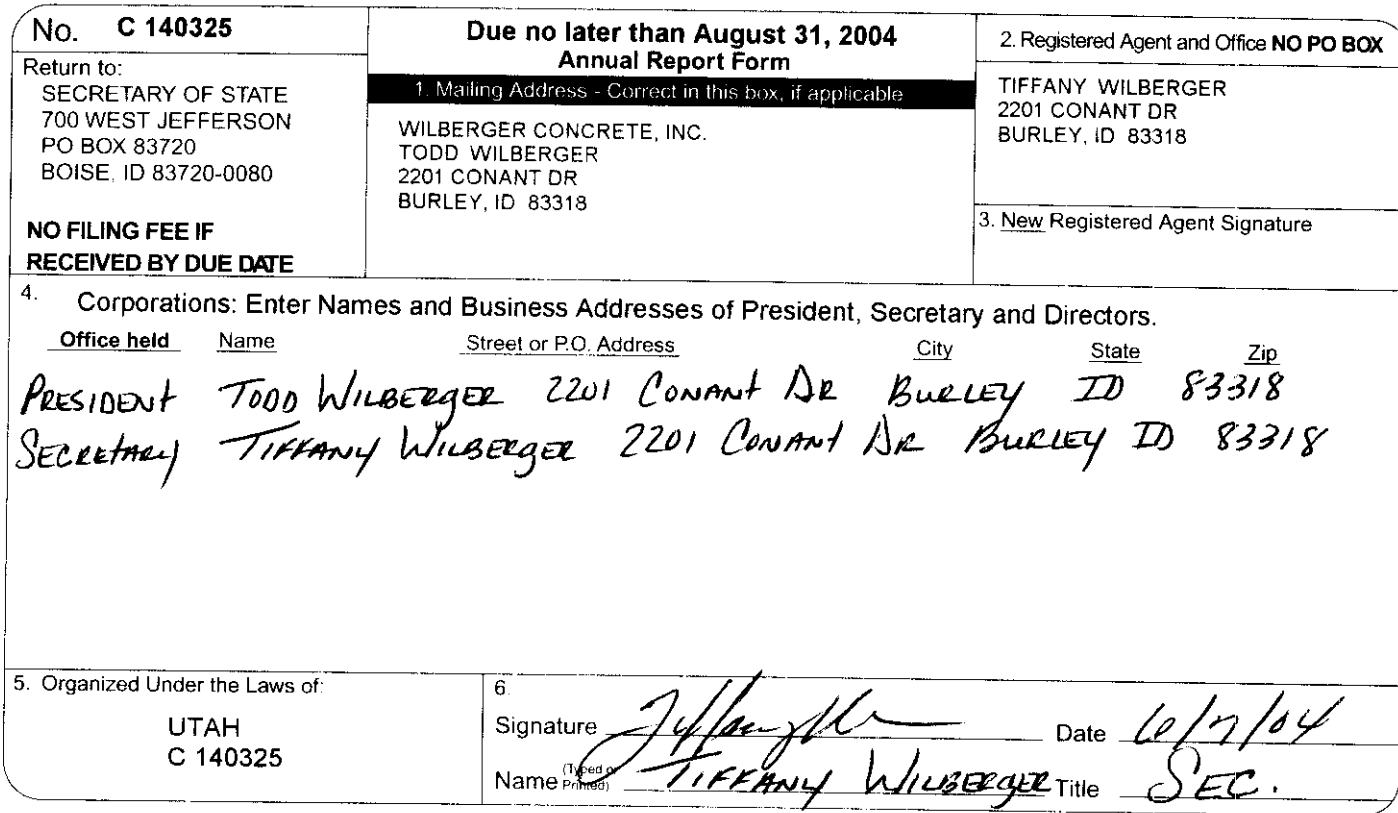 No. C 140325
Return to:
SECRETARY OF STATE
700 WEST JEFFERSON
PO BOX 83720
BOISE, ID 83720-0080
NO FILING FEE IF
RECEIVED BY DUE DATE
Due no later than August 31, 2004
Annual Report Form
1. Mailing Address - Correct in this box, if applicable
WILBERGER CONCRETE, INC.
TODD WILBERGER
2201 CONANT DR
BURLEY, ID 83318
2. Registered Agent and Office NO PO BOX
TIFFANY WILBERGER
2201 CONANT DR
BURLEY, ID 83318
3. New Registered Agent Signature
4. Corporations: Enter Names and Business Addresses of President, Secretary and Directors.
Office held Name Street or P.O. Address City State Zip
PRESIDENT TODD WILBERGER 2201 CONANT DR BURLEY ID 83318
SECRETARY TIFFANY WILBERGER 2201 CONANT DR BURLEY ID 83318
5. Organized Under the Laws of:
UTAH
C 140325
6.
Signature Date 6/7/04
Name (Typed or Printed) TIFFANY WILBERGER Title SEC.